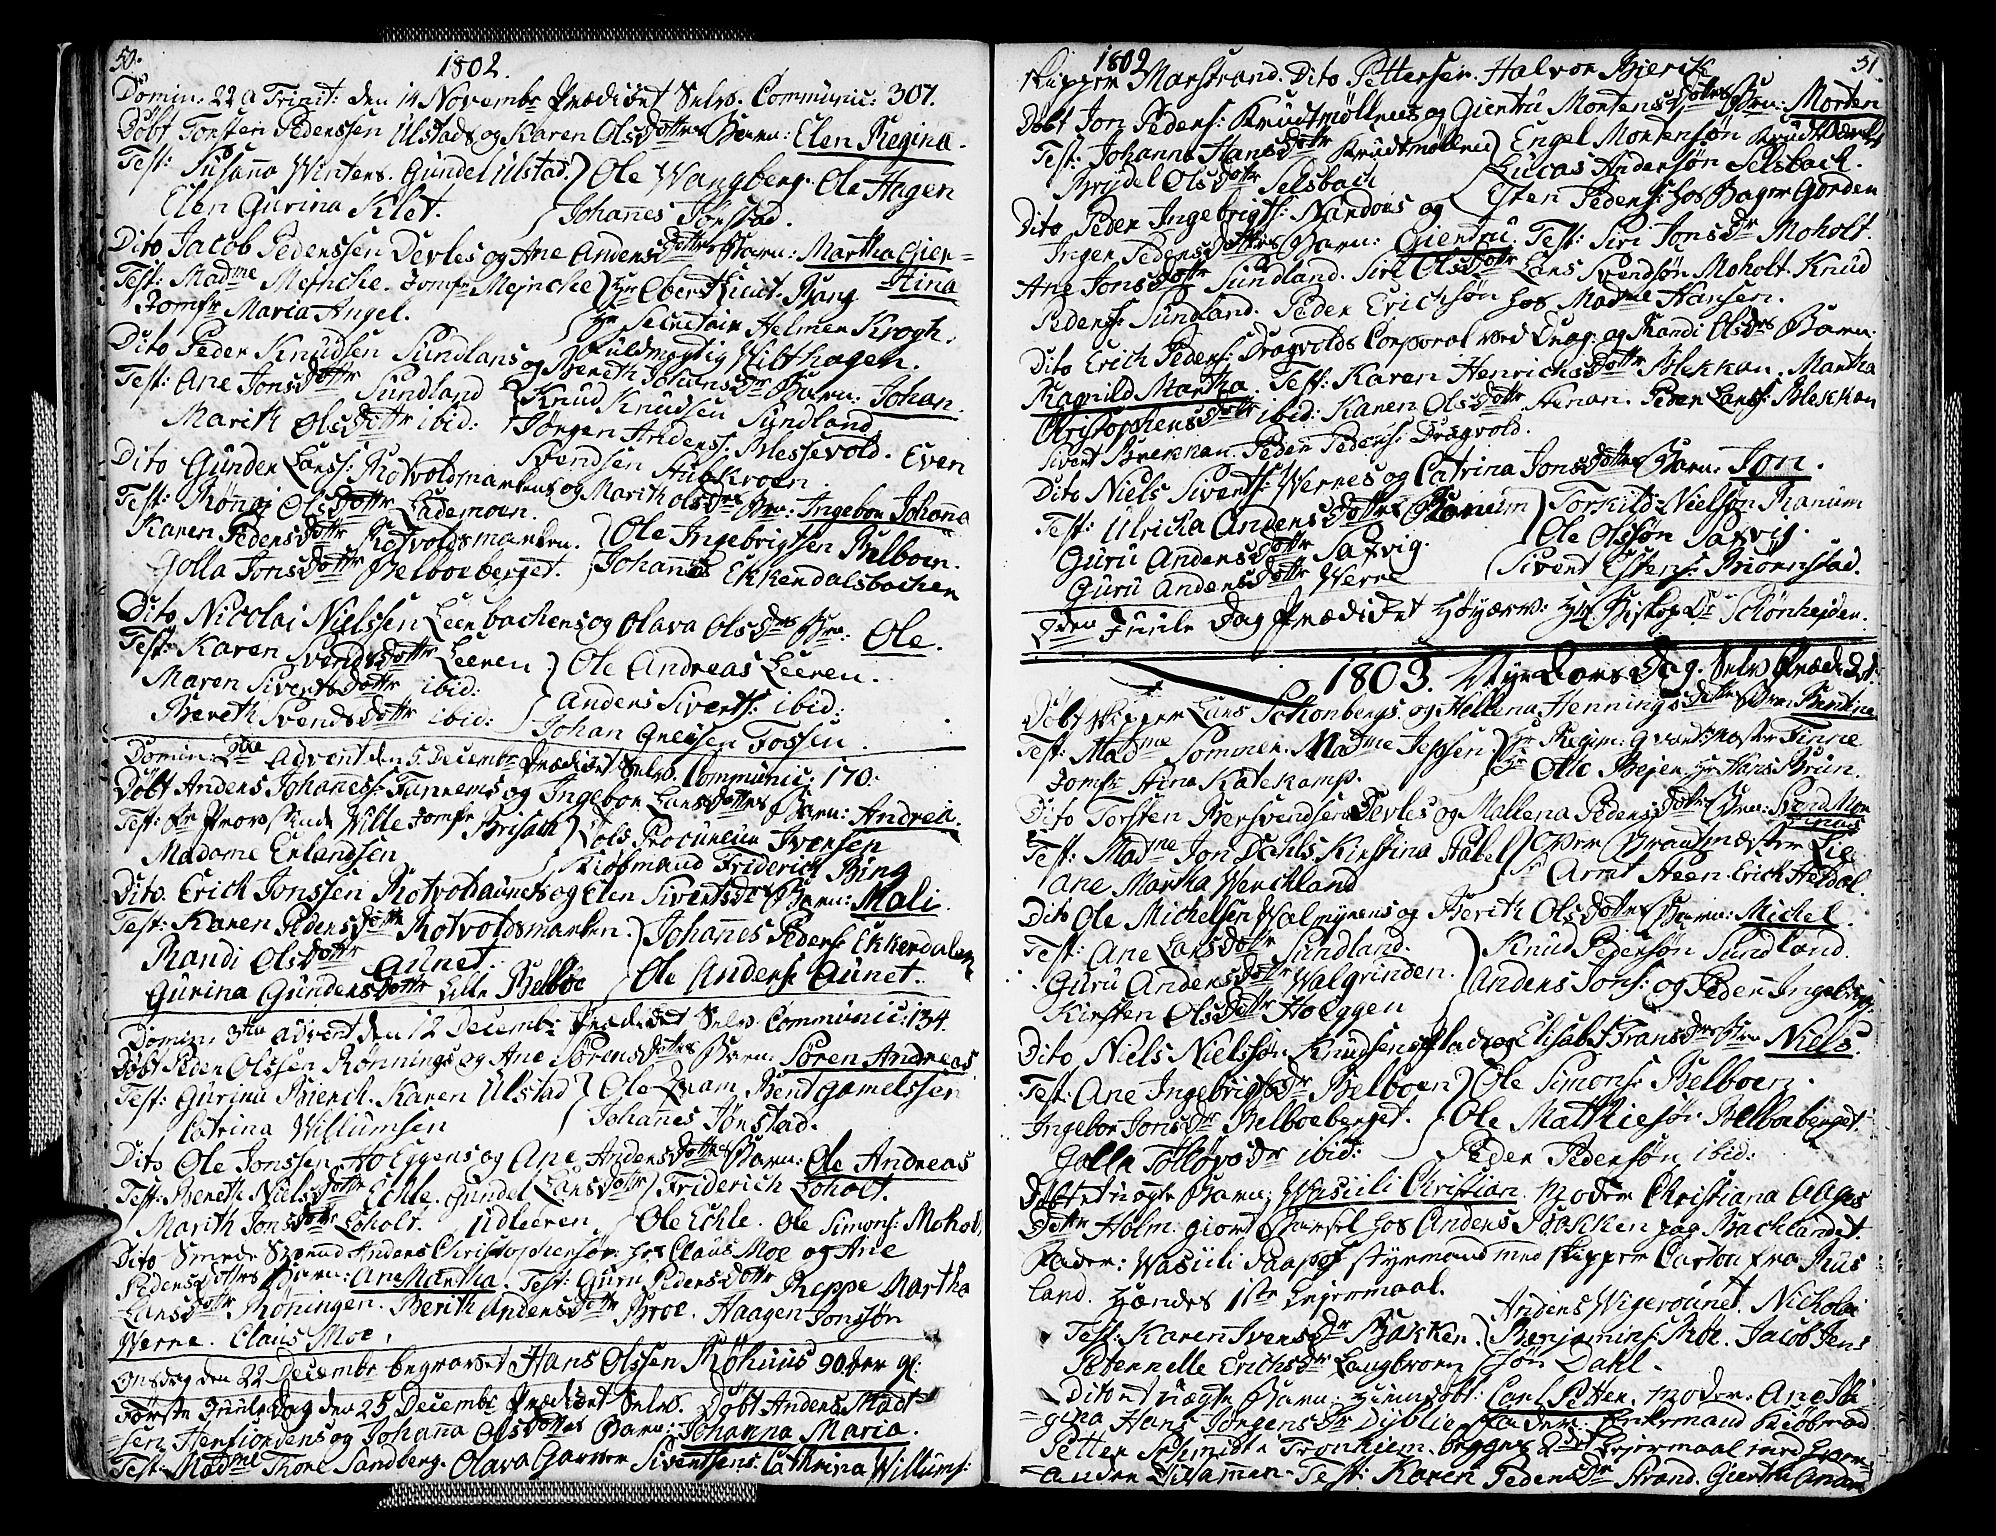 50.
1802.
Domin: 22 a Trinit: den 14 Novembr Prædiket Selv. Communic: 307.
Døbt Torsten Pederssen Ulstads og Karen Olsdotters Barn: Elen Regina.
Test: Susanna Winters. Gundel Ulstad. Ole Wangberg. Ole Hagen
Elen Gurina Klet. Johannes Jønstad.
Dito Jacob Pederssen Devles og Ane Andersdotters Barn: Martha Chier=
Test: Madme Meincke. Jomfr Meincke Hr Oberst Lieut. Bang =stina
Jomfr Maria Angel. Hr Secretair Helmer Krogh.
Fuldmægtig Wilthagen.
Dito Peder Knudsen Sundlans og Bereth Johansdr Barn: Johan.
Test: Ane Jonsdotter Sundland Knud Knudsen Sundland
Marith Olsdotter ibid: Jørgen Anders: Blessevold. Even
Svendsen Stubkroen.
Dito Gunder Larss: Rotvoldsmarkens og Marith Olsdrs Bn: Ingebor Johana
Test: Rønnj Olsdotter Lademoen.
Karen Pedersdotter Rotvoldsmarken. Ole Ingebrigtsen Belboen.
Golla Jonsdotter Belboeberget. Johannes Ekkerdalsbachen
Dito Nicolai Nielssen Leerbachens og Olava Olsdrs Bn: Ole.
Test: Karen Svendsdotter Leeren Ole Andreas Leeren.
Maren Sivertsdotter ibid: Anders Siverts: ibid:
Bereth Svendsdotter ibid: Johan Greysen Fossen.
Domin: 2da Advent den 5 Decembr Prædiket Selv. Communic: 170.
Døbt Anders Johanness: Tunnems og Ingebor Larsdotters Barn: Andrea.
Test: Fr Provstinde Wille Jomfr Brisach Procureur Iversen
Madame Erlandsen Kiøbmand Friderich Bing
Dito Erich Jonssen Rotvoldaunets og Elen Sivertsdrs Barn: Mali.
Test: Karen Pedersdotter Rotvoldsmarken. Johannes Peders: Ekkerdalen
Randi Olsdotter Aunet. Ole Anders: Aunet.
Gurina Gundersdotter Lille Belboe
Domin: 3tia Advent den 12 Decembr Prædiket Selv. Communic: 134.
Døbt Peder Olssen Rønnings og Ane Sørensdotters Barn: Søren Andreas.
Test: Gurina Bierch. Karen Ulstad Ole Qvam. Bend Gamelssen
Catrina Willumsen Johannes Jønstad.
Dito Ole Jonssen Hoeggens og Ane Andersdotters Barn: Ole Andreas
Test: Bereth Nielsdotter Echle. Gundel Larsdotter Friderich Loholt.
Marith Jonsdotter Loholt. Udleeren Ole Echle. Ole Simons: Moholt
Dito Smede Svend Anders Christophersøn hos Claus Moe og Ane
Pedersdotters Barn: Ane Martha. Test: Guru Pedersdotter Reppe Martha
Larsdotter Rønningen. Berith Andersdotter Broe. Haagen Jonssøn
Werne. Claus Moe.
Onsdag den 22 Decembr begravet Hans Olssen Røhuus 90 aar gl:
Første Juule Dag den 25 Decembr Prædiket Selv. Døbt Anders Madt
=sen Henfiordens og Johanna Olsdotters Barn: Johanna Maria.
Test: Madme Thore Sandberg. Olava Garver Sivertsen. Cathrina Willums:
1802
51
skipper Marstrand. Dito Pettersen. Halvor Bierck
Døbt Jon Peders: Krudtmøllens og Giertru Mortensdotters Bn: Morten
Test: Johanna Hansdotter Krudtmøllen Engel Mortensøn Krudtværket
Brydel Olsdotter Selsbach Lucas Andersøn Selsbach.
Esten Peders: hos Bager Garden
Dito Peder Ingebrigts: Nardoes og
Inger Pedersdotters Barn: Giertru. Test: Siri Jonsdr Moholt
Ane Jonsdotter Sundland. Siri Olsdotter Lars Svendsøn Moholt. Knud
Peders: Sundland. Peder Erichsøn hos Madme Hansen.
Dito Erich Peders: Dragvolds Corporal ved Drag: og Randi Olsdrs Barn:
Ragnild Martha. Test: Karen Henrichsdotter Blekkan. Martha
Christophersdotter ibid: Karen Olsdotter Stenan. Peder Lars: Blekkan
Sivert Brekkan. Peder Peders: Dragvold.
Dito Niels Siverts: Wernes og Catrina Jonsdotters Barn: Jon.
Test: Ulricka Andersdotter Ranum Torkild Nielsøn Ranum
Guru Andersdotter Saxvig. Ole Olssøn Saxvig.
Guru Andersdotter Werne Sivert Estens: Biørnstad.
2den Juule Dag Prædiket Høyærv: Hr Biskop Dr Schønheyder.
1803. Nye Aars Dag. Selv Prædiket:
Døbt Skipper Lars Schonbergs og Hellena Henningsdotters Barn: Bentine
Test: Madme Sommer. Madme Jepsen Hr Regim: Qvart: Mester Finne
Jomfr Stina Katekamp. Hr Ole Bejer. Hr Hans Brun.
Dito Torsten Bersvendsen Devles og Mallena Pedersdotters Bn: Svend Mor
tinus
Test: Madme Jon Dahls Kirstina Stabel Over Brandmester Lie
Ane Martha Werckland Sr Arnt Steen. Erich Heldal.
Dito Ole Michelsen Walmyrens og Berith Olsdotters Barn: Michel.
Test: Ane Larsdotter Sundland. Knud Pedersøn Sundland.
Guru Andersdotter Walgrinden. Anders Jons: og Peder Ingebrigt.
Kirsten Olsdotter Hoeggen
Dito Niels Nielssøn Knudsens Plads og Elisabet Fransdrs Bn Niels.
Test: Ane Ingebrigtsdr Belboen Ole Simons: Belboen.
Ingebor Jonsdr Belboeberget. Ole Mathiesøn Belboeberget.
Golla Tølløvsdr ibid: Peder Pedersøn ibid:
Døbt et uægte Barn: Wasiili Christian. Moder Christiana Aages
Dotter Holm. giort Barsel hos Anders Bakken paa Bachlandet.
Fader: Wasiili styrmand med skipper Carton fra Rus
Land. Hændes 1ste Leyermaal.
Test: Karen Iversdr Bakken. Anders Wigerounet. Nicholai
Peternelle Erichsdr Langbroen Benjamins: Moe. Jacob Jens
søn Dahl.
Dito et uægte Barn: Hiemdøbt: Carl Petter. Moder: Ane Re=
=gina Hans Jørgensdr Dyblie Fader: Enkemand Kiøbmand
Petter Schmidt i Tronhiem. begges 2det Leyermaal med hver=
=andre tilsammen. Test: Karen Pedersdr Strand. Giertru Anders